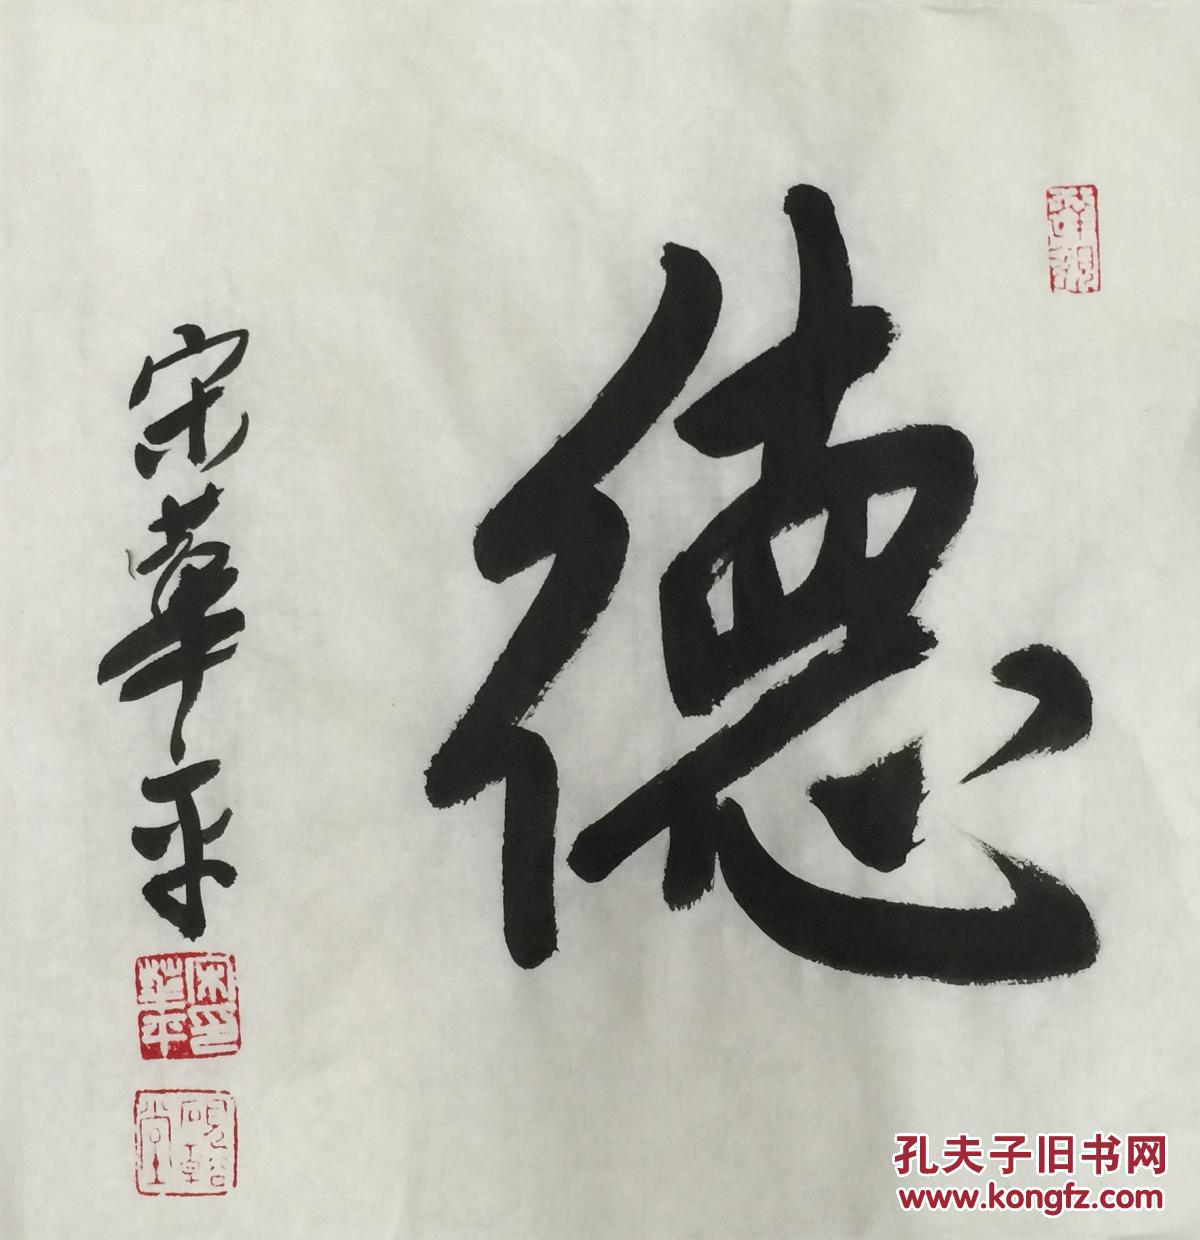 德
宋華平
宋華平印
孔夫子旧书网
www.kongfz.com